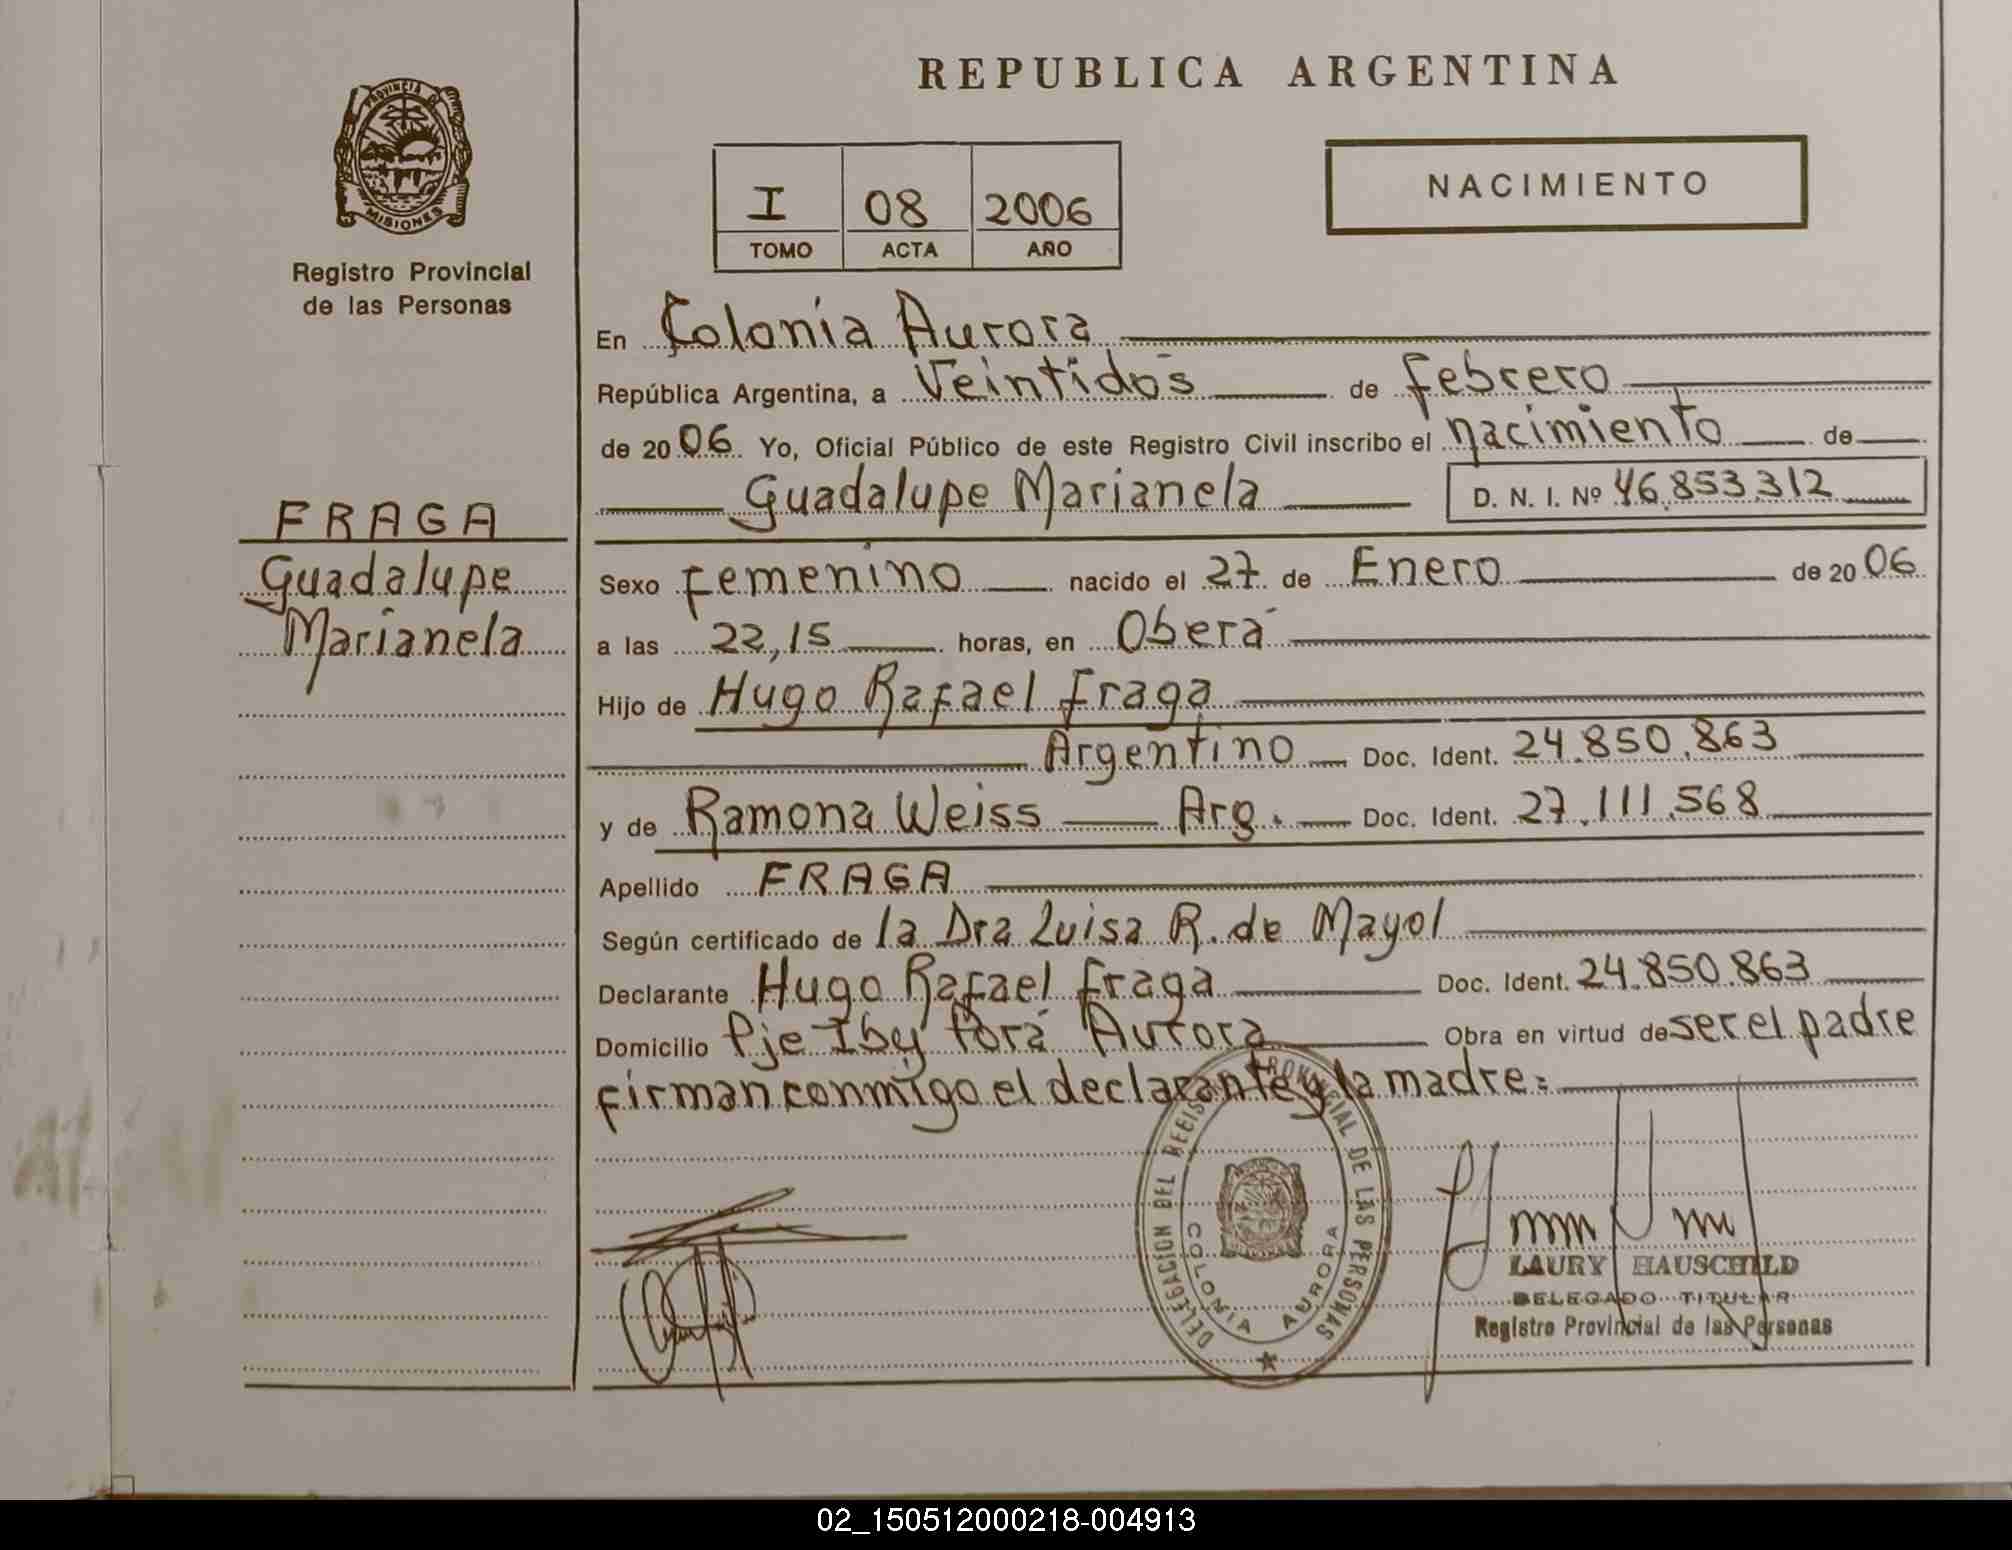 REPUBLICA ARGENTINA
PROVINCIA DE MISIONES
Registro Provincial
de las Personas
I 08 2006
TOMO ACTA AÑO
NACIMIENTO
FRAGA
Guadalupe
Marianela
En Colonia Aurora
República Argentina, a Veintidós de febrero
de 2006 Yo, Oficial Público de este Registro Civil inscribo el nacimiento de
Guadalupe Marianela D. N. I. Nº 46.853.312
Sexo femenino nacido el 27 de Enero de 2006
a las 22,15 horas, en Oberá
Hijo de Hugo Rafael Fraga
Argentino Doc. Ident. 24.850.863
y de Ramona Weiss Arg. Doc. Ident. 27.111.568
Apellido FRAGA
Según certificado de la Dra Luisa R. de Mayol
Declarante Hugo Rafael Fraga Doc. Ident. 24.850.863
Domicilio Pje Iby Porá Aurora Obra en virtud de ser el padre
firman conmigo el declarante y la madre:
DELEGACION DEL REGISTRO PROVINCIAL DE LAS PERSONAS
COLONIA AURORA
LAURY HAUSCHILD
DELEGADO TITULAR
Registro Provincial de las Personas
02_150512000218-004913